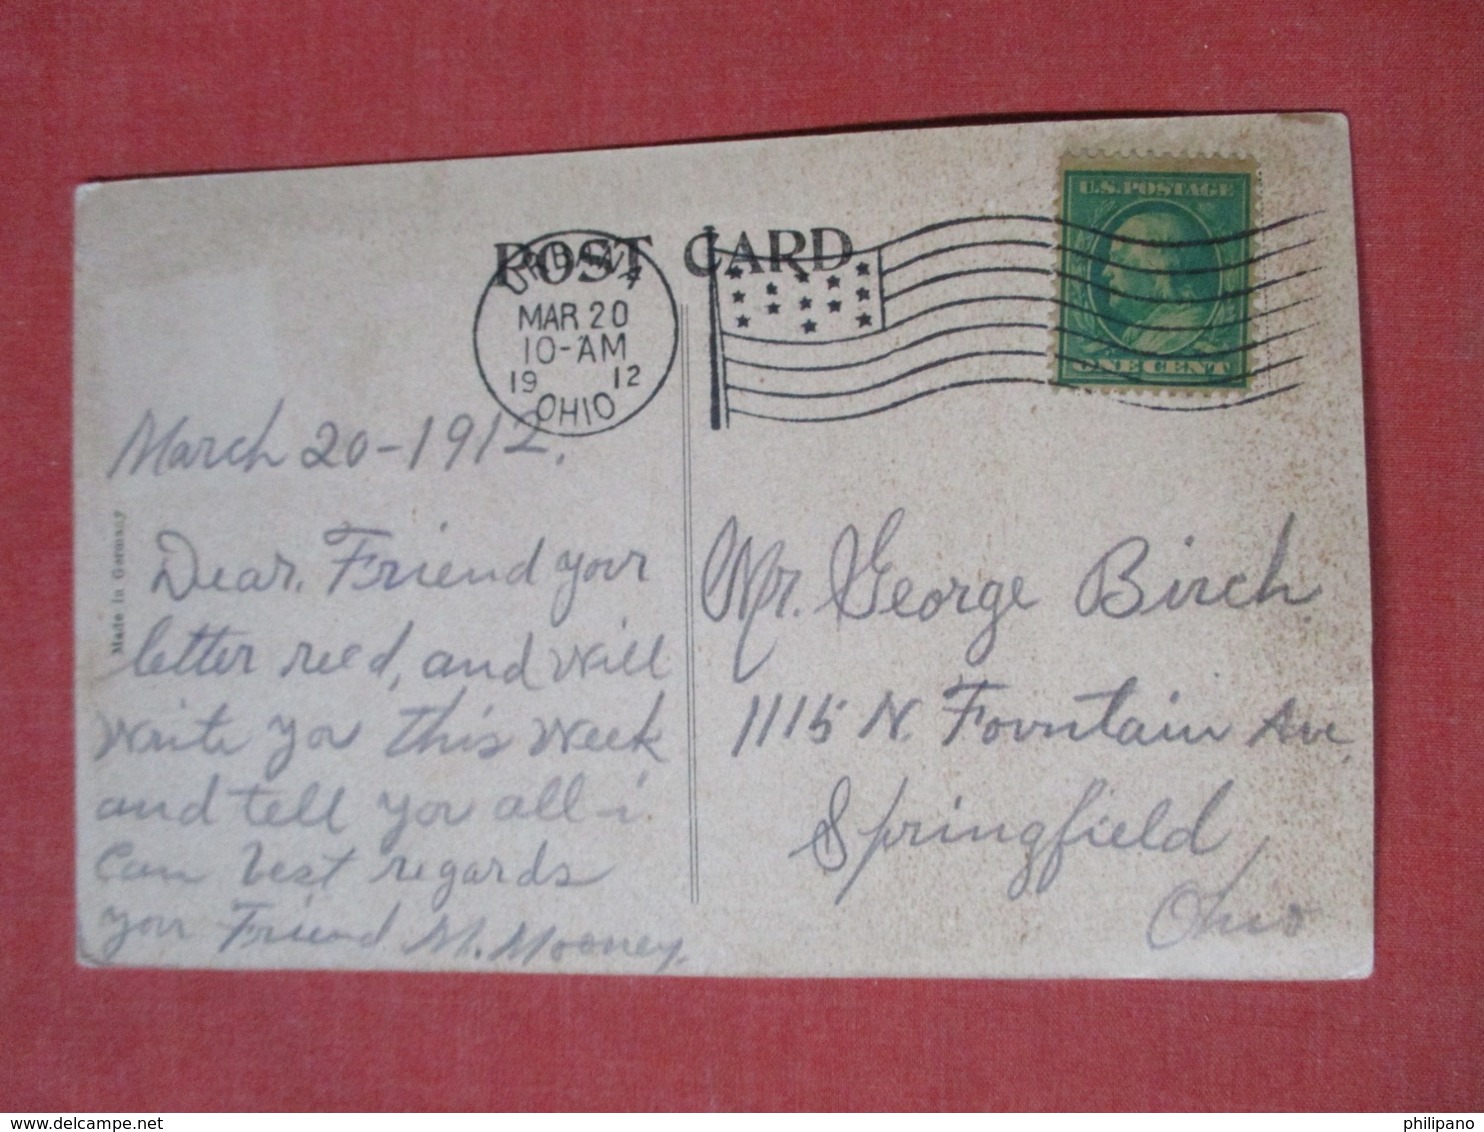 POST CARD
URBANA
MAR 20
10-AM
19 12
OHIO
U.S. POSTAGE
ONE CENT
March 20-1912.
Made in Germany
Dear, Friend your
letter recd, and will
write you this week
and tell you all i
can best regards
your Friend M. Mooney.
Mr. George Birch
1115 N. Fountain Ave,
Springfield,
Ohio
www.delcampe.net
philipano